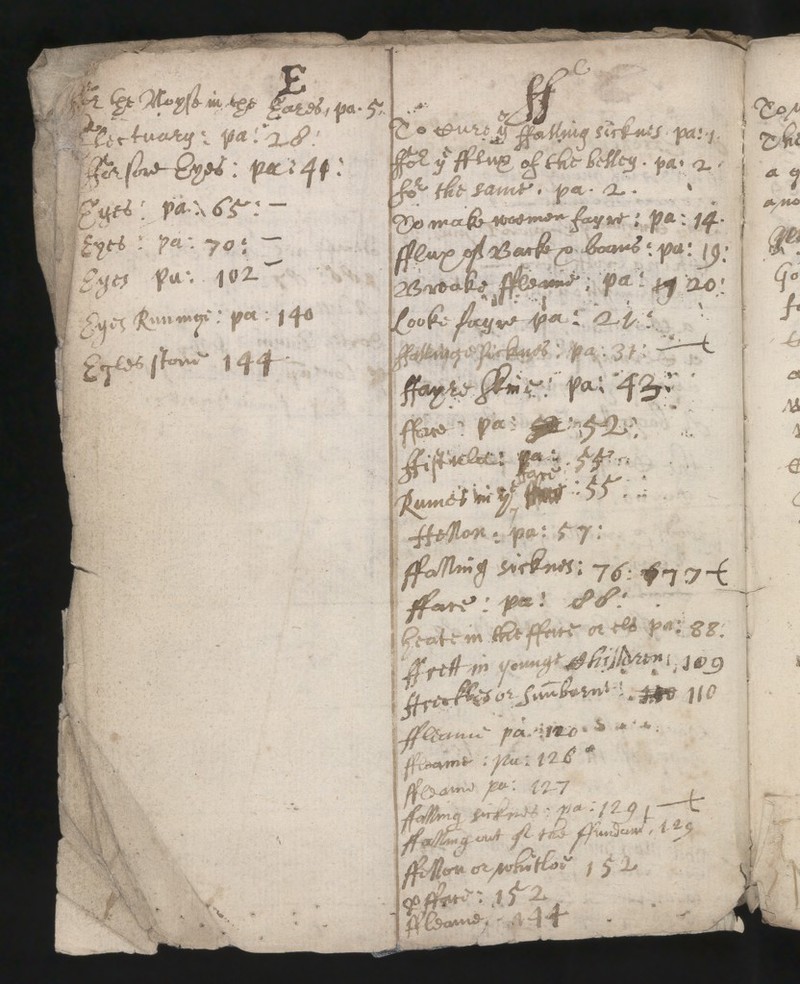 E
For the Noyse in the Eares, pa. 5.
Electuary: pa: 28:
ffor sore Eyes: pa: 41:
Eyes: pa: 65: –
Eyes: pa: 70: –
Eyes pa: 102 –
Eyes Runninge: pa: 140
Egles stone 144
ff
To Cure ye ffalling sicknes. pa: 1.
ffor ye fflux of the belley. pa. 2.
for the same. pa. 2.
To make woemen fayre: pa: 14.
fflux of Backe &: pa: 19:
Breake ffleame: pa: 20:
Looke fayre pa: 21:
ffallinge sicknes: pa: 31:
ffayre skine: pa: 43:
fface: pa: 52:
ffistula: pa: 55
Rumes in ye face: 55:
ffellon: pa: 57:
ffalling sicknes: 76: 77
fface: pa: 88:
heate in the fface or els pa: 88:
ffrett in younge Children, 109
ffreckles or Sunborne: 110
ffleame pa: 120
ffleame: pa: 126
ffleame pa: 127
ffalling sicknes: pa: 129
ffalling out of the ffundam̄t. 129
ffellon or whitloe 152
fface: 152
ffleame. 144
To
The
a